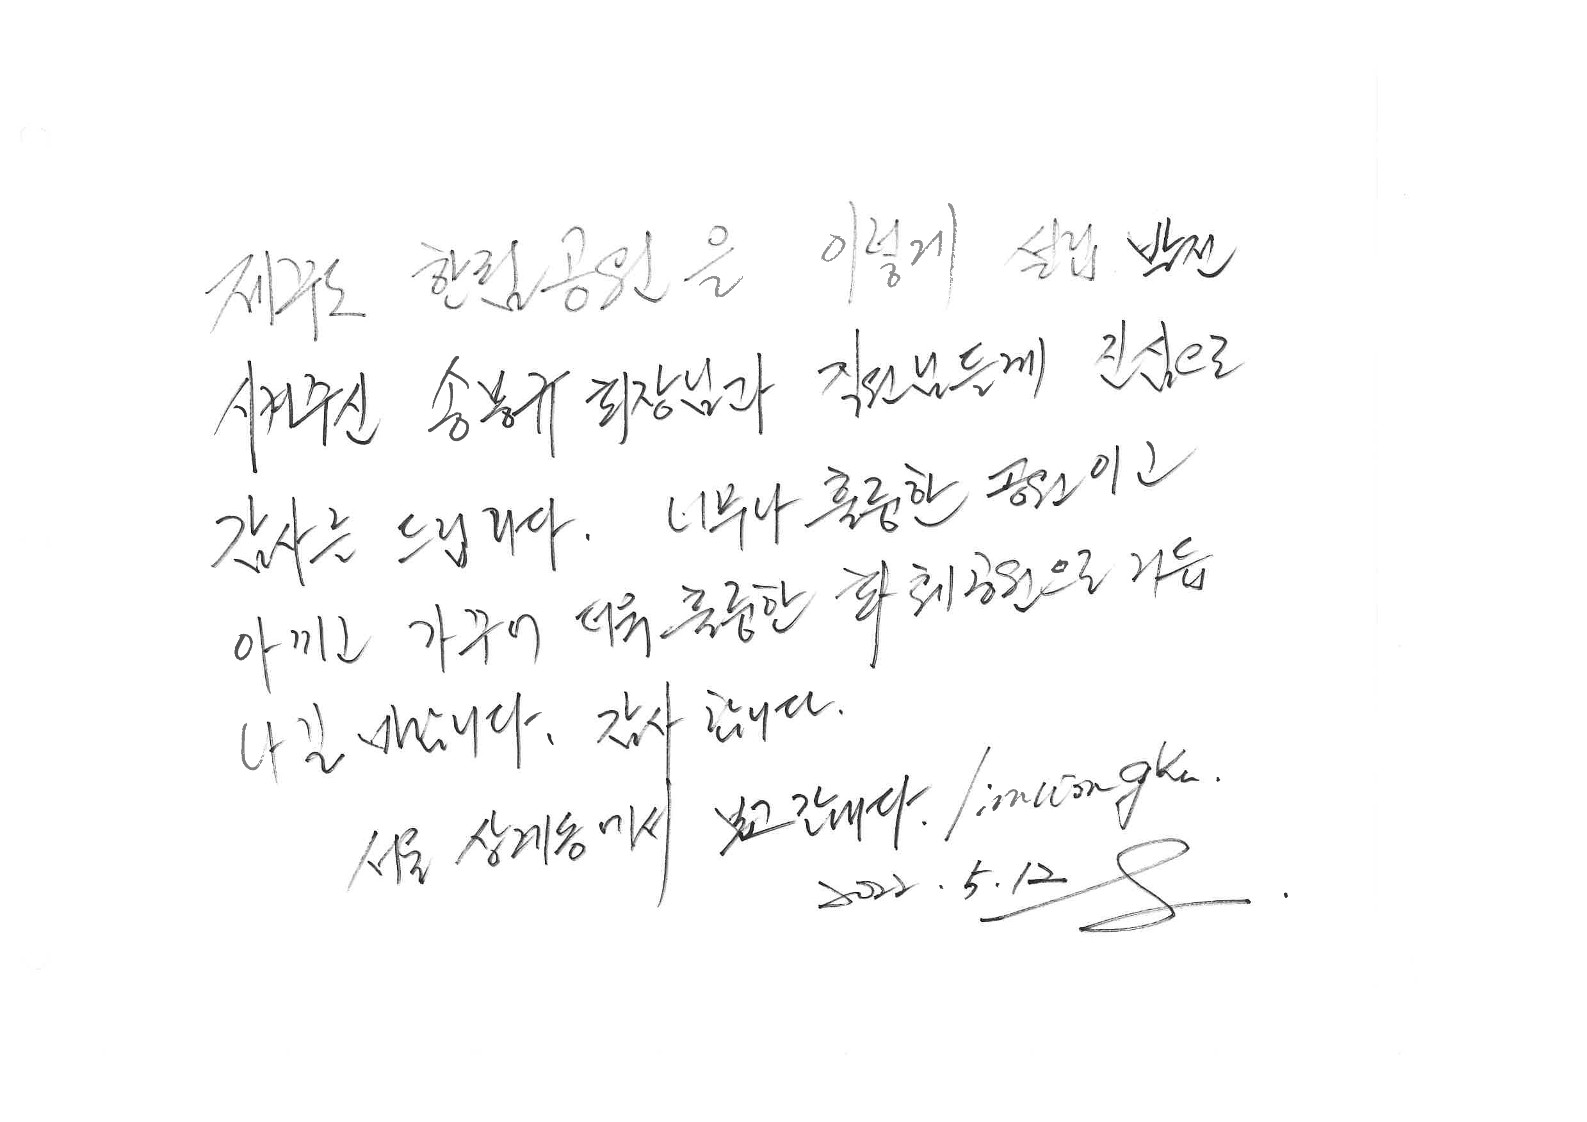 제주도 한림공원을 이렇게 설립 발전
시켜주신 송봉규 회장님과 직원님들께 진심으로
감사를 드립니다. 너무나 훌륭한 공원이고
아끼고 가꾸어 더욱 훌륭한 화훼공원으로 거듭
나길 바랍니다. 감사합니다.
서울 상계동에서 보고 갑니다.
2022. 5. 12